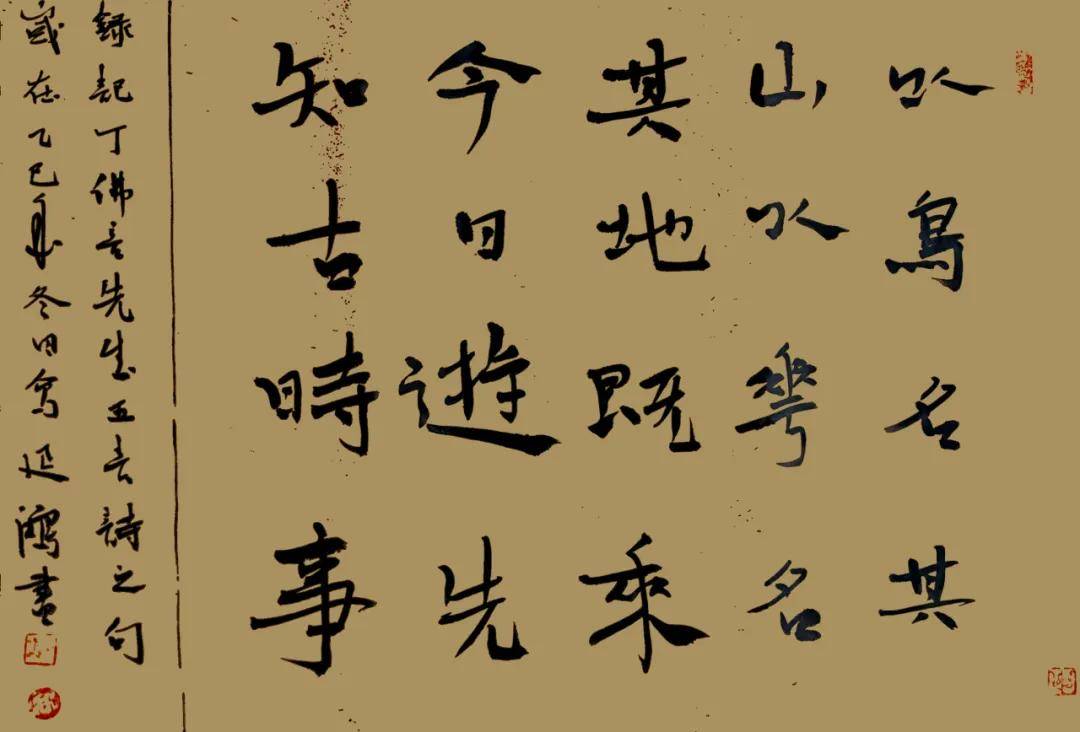 以鳥名其
山以華名
其地既来
今日遊先
知古時事
録記丁佛言先生五言詩之句
歲在乙巳年冬日寫延鴻書